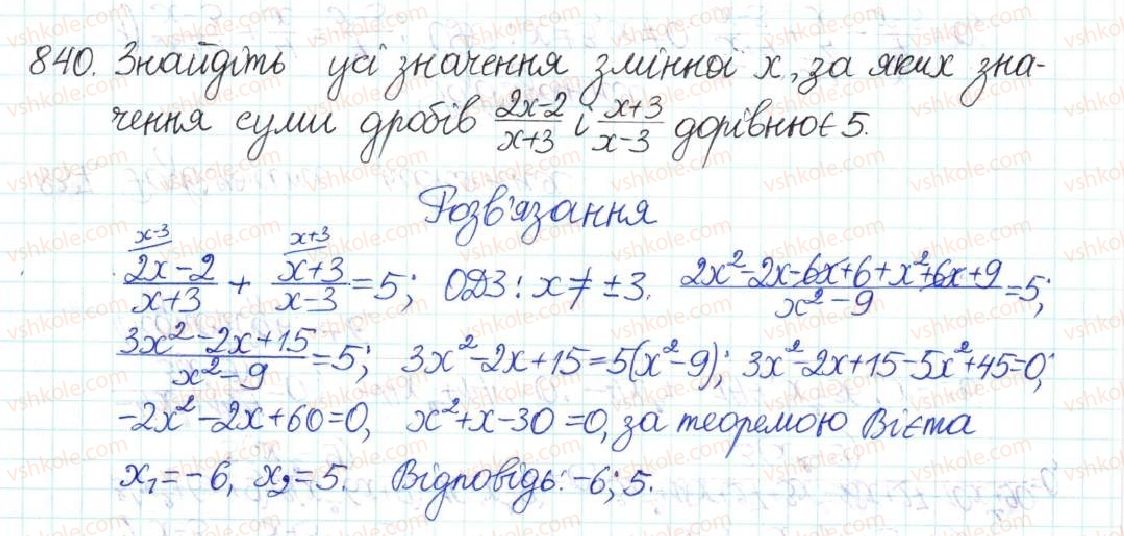 840. Знайдіть усі значення змінної x, за яких зна-
чення суми дробів (2x-2)/(x+3) і (x+3)/(x-3) дорівнює 5.
Розв'язання
(2x-2)/(x+3) (x-3) + (x+3)/(x-3) (x+3) = 5; ОДЗ: x ≠ ±3. (2x²-2x-6x+6+x²+6x+9)/(x²-9) = 5;
(3x²-2x+15)/(x²-9) = 5; 3x²-2x+15=5(x²-9); 3x²-2x+15-5x²+45=0;
-2x²-2x+60=0, x²+x-30=0, за теоремою Вієта
x₁=-6, x₂=5. Відповідь: -6; 5.